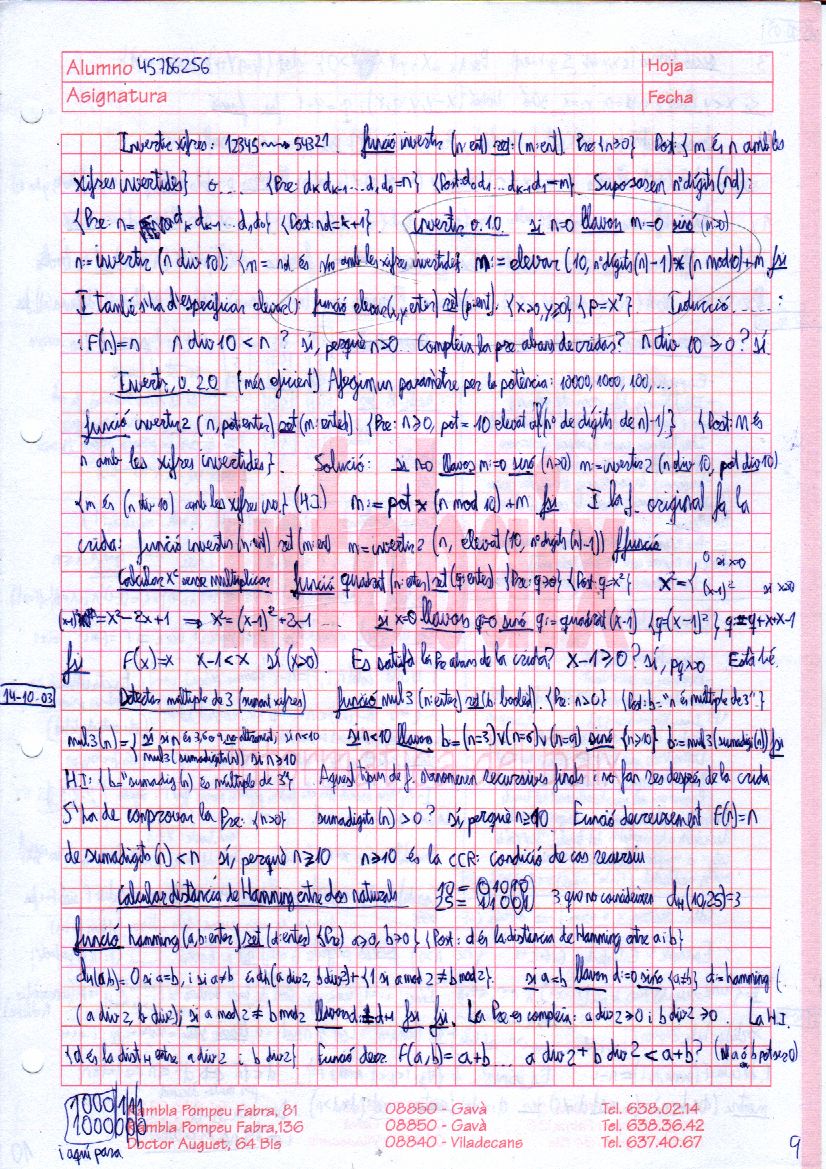 Alumno 45786256 Hoja
Asignatura Fecha
Invertir xifres: 12345 ⟿ 54321. funció invertir (n: ent) ret: (m: ent). Pre {n≥0} Post: {m és n amb les
xifres invertides} o.... {Pre: dk dk-1 ... d1 d0 = n} {Post: d0 d1 ... dk-1 dk = m}. Suposasem nºdígits (nd):
{Pre: n = dk dk-1 ... d1 d0} {Post: nd = k+1}. invertir v. 1.0 si n=0 llavors m:=0 sinó (n>0)
m:= invertir (n div 10); {m = nd és n/10 amb les xifres invertides}. m:= elevar (10, nºdígits(n)-1)*(n mod 10)+m fsi
I també s'ha d'especificar elevar(): funció elevar(x,y: enter) ret (p: ent). {x>0, y≥0} {p=x^y}. Inducció ..... :
: F(n)=n n div 10 < n ? sí, perquè n>0.. Compleix la pre abans de cridar? n div 10 ≥ 0? Sí.
Invertir, v. 2.0 (més eficient) Afegim un paràmetre per la potència: 10000, 1000, 100, ...
funció invertir2 (n, pot: enter) ret (m: enter). {Pre: n≥0, pot = 10 elevat al ((nº de dígits de n)-1)} {Post: m és
n amb les xifres invertides}. Solució: si n=0 llavors m:=0 sinó (n>0) m:= invertir2 (n div 10, pot div 10)
{m és (n div 10) amb les xifres inv.} (H.I.) m:= pot * (n mod 10) + m fsi I la f. original fa la
crida: funció invertir (n: ent) ret (m: ent) m = invertir2 (n, elevat (10, nºdígits(n)-1)) ffunció
Calcular x² sense multiplicar funció quadrat (n: enter) ret (q: enter) {Pre: q≥0} {Post: q=x²} x² = { 0 si x=0
(x-1)² si x>0
(x-1)² = x²-2x+1 ⟹ x² = (x-1)²+2x-1 ... si x=0 llavors q=0 sinó q:= quadrat (x-1) {q=(x-1)²} q:=q+x+x-1
fsi F(x)=x x-1<x sí (x>0). Es satisfà la Pre abans de la crida? x-1≥0? sí, pq x>0 Està bé.
14-10-03
Detectar múltiple de 3 (sumant xifres) funció mul3 (n: enter) ret (b: booleà). {Pre: n>0} {Post: b="n és múltiple de 3".}
mul3(n) = { sí si n és 3, 6 o 9, no altrament, si n<10 si n<10 llavors b:=(n=3)∨(n=6)∨(n=9) sinó {n≥10} b:=mul3(sumadigi(n)) fsi
mul3(sumadigits(n)) si n≥10
H.I.: {b="sumadig(n) és múltiple de 3"}. Aquest tipus de f. s'anomenen recursives finals: no fan res després de la crida
S'ha de comprovar la Pre: {n>0} sumadigits(n) > 0? sí, perquè n≥10. Funció decreixement f(n)=n
de sumadigits(n) < n sí, perquè n≥10 n≥10 és la CCR: condició de cas recursiu
Calcular distància de Hamming entre dos naturals 10 = 01010
25 = 11001 3 que no coincideixen dH(10,25)=3
funció hamming (a,b: enter) ret (d: enter) {Pre} a≥0, b≥0 } {Post: d és la distància de Hamming entre a i b}
dH(a,b) = 0 si a=b, i si a≠b és dH(a div 2, b div 2)+{1 si a mod 2 ≠ b mod 2}. si a=b llavors d:=0 sinó {a≠b} d:=hamming (.
(a div 2, b div 2); si a mod 2 ≠ b mod 2 llavors d:=d+1 fsi fsi. La Pre es compleix: a div 2 ≥0 i b div 2 ≥0. La H.I.
{d és la dist H entre a div 2 i b div 2} Funció decr. f(a,b) = a+b... a div 2 + b div 2 < a+b? (Ni a ó b pot ser 0)
1000111
1000000
i aquí passa
Rambla Pompeu Fabra, 81 08850 - Gavà Tel. 638.02.14
Rambla Pompeu Fabra,136 08850 - Gavà Tel. 638.36.42
Doctor Auguet, 64 Bis 08840 - Viladecans Tel. 637.40.67
9